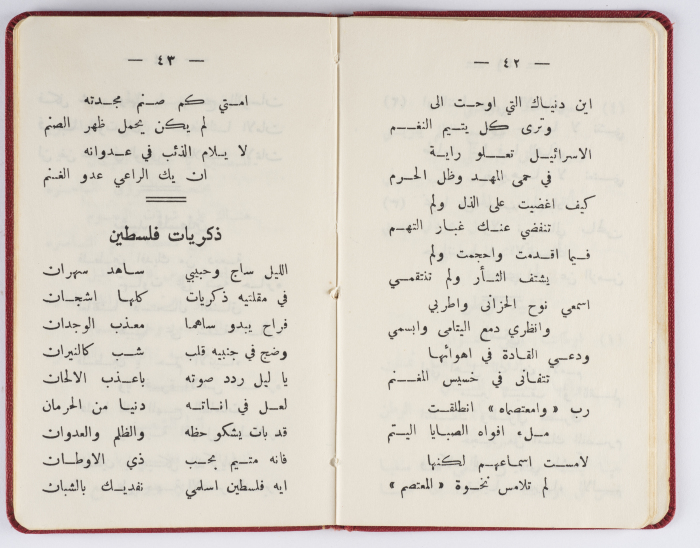 — ٤٢ —
اين دنياك التي اوحت الى
وترى كل يتيم النغم
الاسرائيل تعلو راية
في حمى المهد وظل الحرم
كيف اغضيت على الذل ولم
تنفضي عنك غبار التهم
فيما اقدمت واحجمت ولم
يشتف الثأر ولم تنتقمي
اسمعي نوح الحزانى واطربي
وانظري دمع اليتامى وابسمي
ودعي القادة في اهوائها
تتفانى في خسيس المغنم
رب «وامعتصماه» انطلقت
ملء افواه الصبايا اليتم
لامست اسماعهم لكنها
لم تلامس نخوة «المعتصم»
— ٤٣ —
امتي كم صنم مجدته
لم يكن يحمل ظهر الصنم
لا يلام الذئب في عدوانه
ان يك الراعي عدو الغنم
ذكريات فلسطين
الليل ساج وحبيبي ساهد سهران
في مقلتيه ذكريات كلها اشجان
فراح يبدو ساهما معذب الوجدان
وضج في جنبيه قلب شب كالنيران
يا ليل ردد صوته باعذب الالحان
لعل في اناته دنيا من الحرمان
قد بات يشكو حظه والظلم والعدوان
فانه متيم بحب ذي الاوطان
ايه فلسطين اسلمي نفديك بالشبان